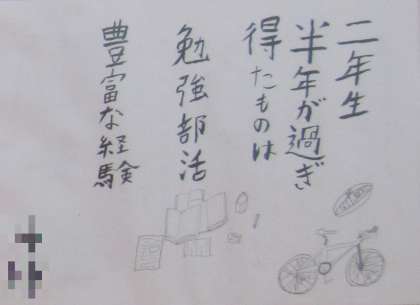 二年生
半年が過ぎ
得たものは
勉強部活
豊富な経験